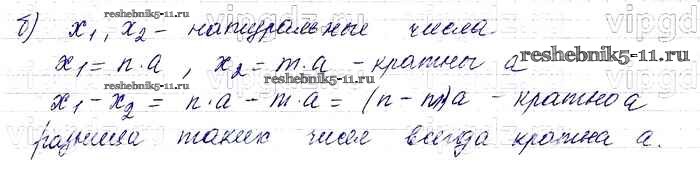 б) x₁, x₂ - натуральные числа.
x₁ = n·a, x₂ = m·a - кратны a
x₁ - x₂ = n·a - m·a = (n - m)a - кратно a
разница таких чисел всегда кратна a.
reshebnik5-11.ru
reshebnik5-11.ru
reshebnik5-11.ru
reshebnik5-11.ru